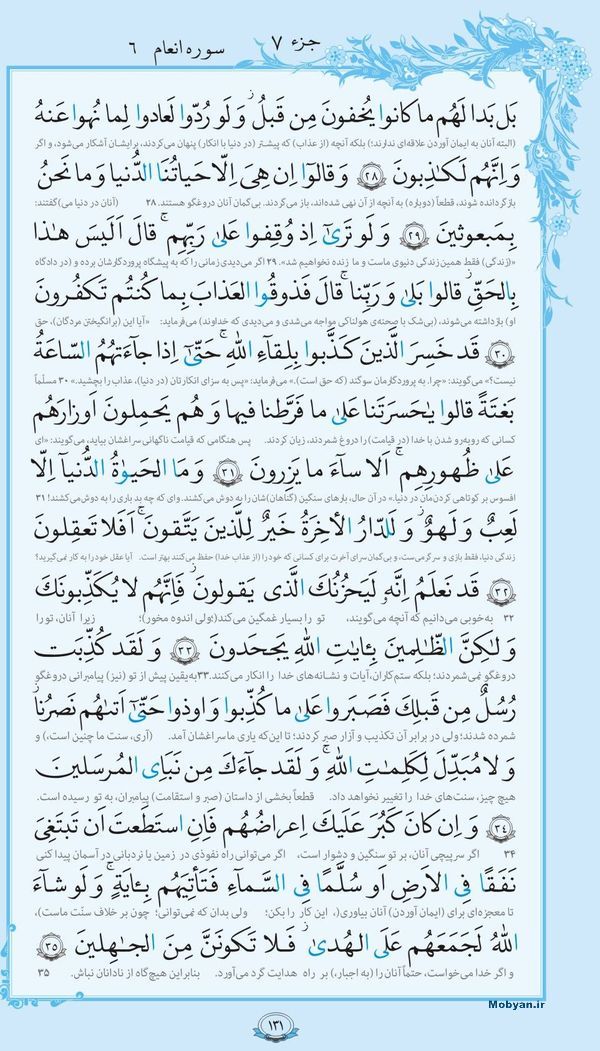 جزء ۷
سوره انعام ۶
بَل بَدا لَهُم ما كانوا يُخفونَ مِن قَبلُ ۖ وَ لَو رُدّوا لَعادوا لِما نُهوا عَنهُ
(البته آنان به ایمان آوردن علاقه‌ای ندارند؛) بلکه آنچه (از عذاب) که پیشتر (در دنیا با انکار) پنهان می‌کردند، برایشان آشکار می‌شود، و اگر
وَ اِنَّهُم لَكاذِبونَ ﴿۲۸﴾ وَ قالوٓا اِن هِىَ اِلّا حَياتُنَا الدُّنيا وَ ما نَحنُ
بازگردانده شوند، قطعاً (دوباره) به آنچه از آن نهی شده‌اند، باز می‌گردند. بی‌گمان آنان دروغگو هستند. ۲۸ (آنان در دنیا می) گفتند:
بِمَبعوثينَ ﴿۲۹﴾ وَ لَو تَرىٰٓ اِذ وُقِفوا عَلىٰ رَبِّهِم ۚ قالَ اَلَيسَ هٰذا
«(زندگی) فقط همین زندگی دنیوی ماست و ما زنده نخواهیم شد». ۲۹ اگر می‌دیدی زمانی را که به پیشگاه پروردگارشان برده و (در دادگاه
بِالحَقِّ ۚ قالوا بَلىٰ وَ رَبِّنا ۚ قالَ فَذوقُوا العَذابَ بِما كُنتُم تَكفُرونَ
او) بازداشته می‌شوند، (بی‌شک با صحنه‌ی هولناکی مواجه می‌شدی و می‌دیدی که خداوند) می‌فرماید: «آیا این (برانگیختن مردگان)، حق
﴿۳۰﴾ قَد خَسِرَ الَّذينَ كَذَّبوا بِلِقآءِ اللهِ ۖ حَتّىٰٓ اِذا جآءَتهُمُ السّاعَةُ
نیست؟» می‌گویند: «چرا. به پروردگارمان سوگند (که حق است).» می‌فرماید: «پس به سزای انکارتان (در دنیا)، عذاب را بچشید.» ۳۰ مسلّماً
بَغتَةً قالوا يٰحَسرَتَنا عَلىٰ ما فَرَّطنا فيها وَ هُم يَحمِلونَ اَوزارَهُم
کسانی که روبه‌رو شدن با خدا (در قیامت) را دروغ شمردند، زیان کردند. پس هنگامی که قیامت ناگهانی سراغشان بیاید، می‌گویند: «ای
عَلىٰ ظُهورِهِم ۚ اَلا سآءَ ما يَزِرونَ ﴿۳۱﴾ وَ مَا الحَيوٰةُ الدُّنيآ اِلّا
افسوس بر کوتاهی کردن‌مان در دنیا.» در آن حال، بارهای سنگین (گناهان)شان را به دوش می‌کشند. وای که چه بد باری را به دوش می‌کشند! ۳۱
لَعِبٌ وَ لَهوٌ ۖ وَ لَلدّارُ الأخِرَةُ خَيرٌ لِلَّذينَ يَتَّقونَ ۗ اَفَلا تَعقِلونَ
زندگی دنیا، فقط بازی و سرگرمی‌ست، و بی‌گمان سرای آخرت برای کسانی که خود را (از عذاب خدا) حفظ می‌کنند بهتر است. آیا عقل خود را به کار نمی‌گیرید؟
﴿۳۲﴾ قَد نَعلَمُ اِنَّهُ لَيَحزُنُكَ الَّذى يَقولونَ ۖ فَاِنَّهُم لا يُكَذِّبونَكَ
۳۲ به‌خوبی می‌دانیم که آنچه می‌گویند، تو را بسیار غمگین می‌کند (؛ولی اندوه مخور)؛ زیرا آنان، تو را
وَ لٰكِنَّ الظّالِمينَ بِـٔاياتِ اللهِ يَجحَدونَ ﴿۳۳﴾ وَ لَقَد كُذِّبَت
دروغگو نمی‌شمردند؛ بلکه ستم‌کاران، آیات و نشانه‌های خدا را انکار می‌کنند. ۳۳ به‌یقین پیش از تو (نیز) پیامبرانی دروغگو
رُسُلٌ مِن قَبلِكَ فَصَبَروا عَلىٰ ما كُذِّبوا وَ اوذوا حَتّىٰٓ اَتىٰهُم نَصرُنا ۚ
شمرده شدند؛ ولی در برابر آن تکذیب و آزار صبر کردند؛ تا این‌که یاری ما سراغشان آمد. (آری، سنت ما چنین است،) و
وَ لا مُبَدِّلَ لِكَلِمٰتِ اللهِ ۚ وَ لَقَد جآءَكَ مِن نَبَاِى المُرسَلينَ
هیچ چیز، سنت‌های خدا را تغییر نخواهد داد. قطعاً بخشی از داستان (صبر و استقامت) پیامبران، به تو رسیده است.
﴿۳۴﴾ وَ اِن كانَ كَبُرَ عَلَيكَ اِعراضُهُم فَاِنِ استَطَعتَ اَن تَبتَغِىَ
۳۴ اگر سرپیچی آنان، بر تو سنگین و دشوار است، اگر می‌توانی راه نفوذی در زمین یا نردبانی در آسمان پیدا کنی
نَفَقًا فِى الاَرضِ اَو سُلَّمًا فِى السَّمآءِ فَتَأتِيَهُم بِـٔايَةٍ ۚ وَ لَو شآءَ
تا معجزه‌ای برای (ایمان آوردن) آنان بیاوری، این کار را بکن؛ ولی بدان که نمی‌توانی؛ چون بر خلاف سنّت ماست)،
اللهُ لَجَمَعَهُم عَلَى الهُدىٰ ۚ فَلا تَكونَنَّ مِنَ الجٰهِلينَ ﴿۳۵﴾
و اگر خدا می‌خواست، حتماً آنان را (به اجبار)، بر راه هدایت گرد می‌آورد. بنابراین هیچ‌گاه از نادانان نباش. ۳۵
Mobyan.ir
۱۳۱